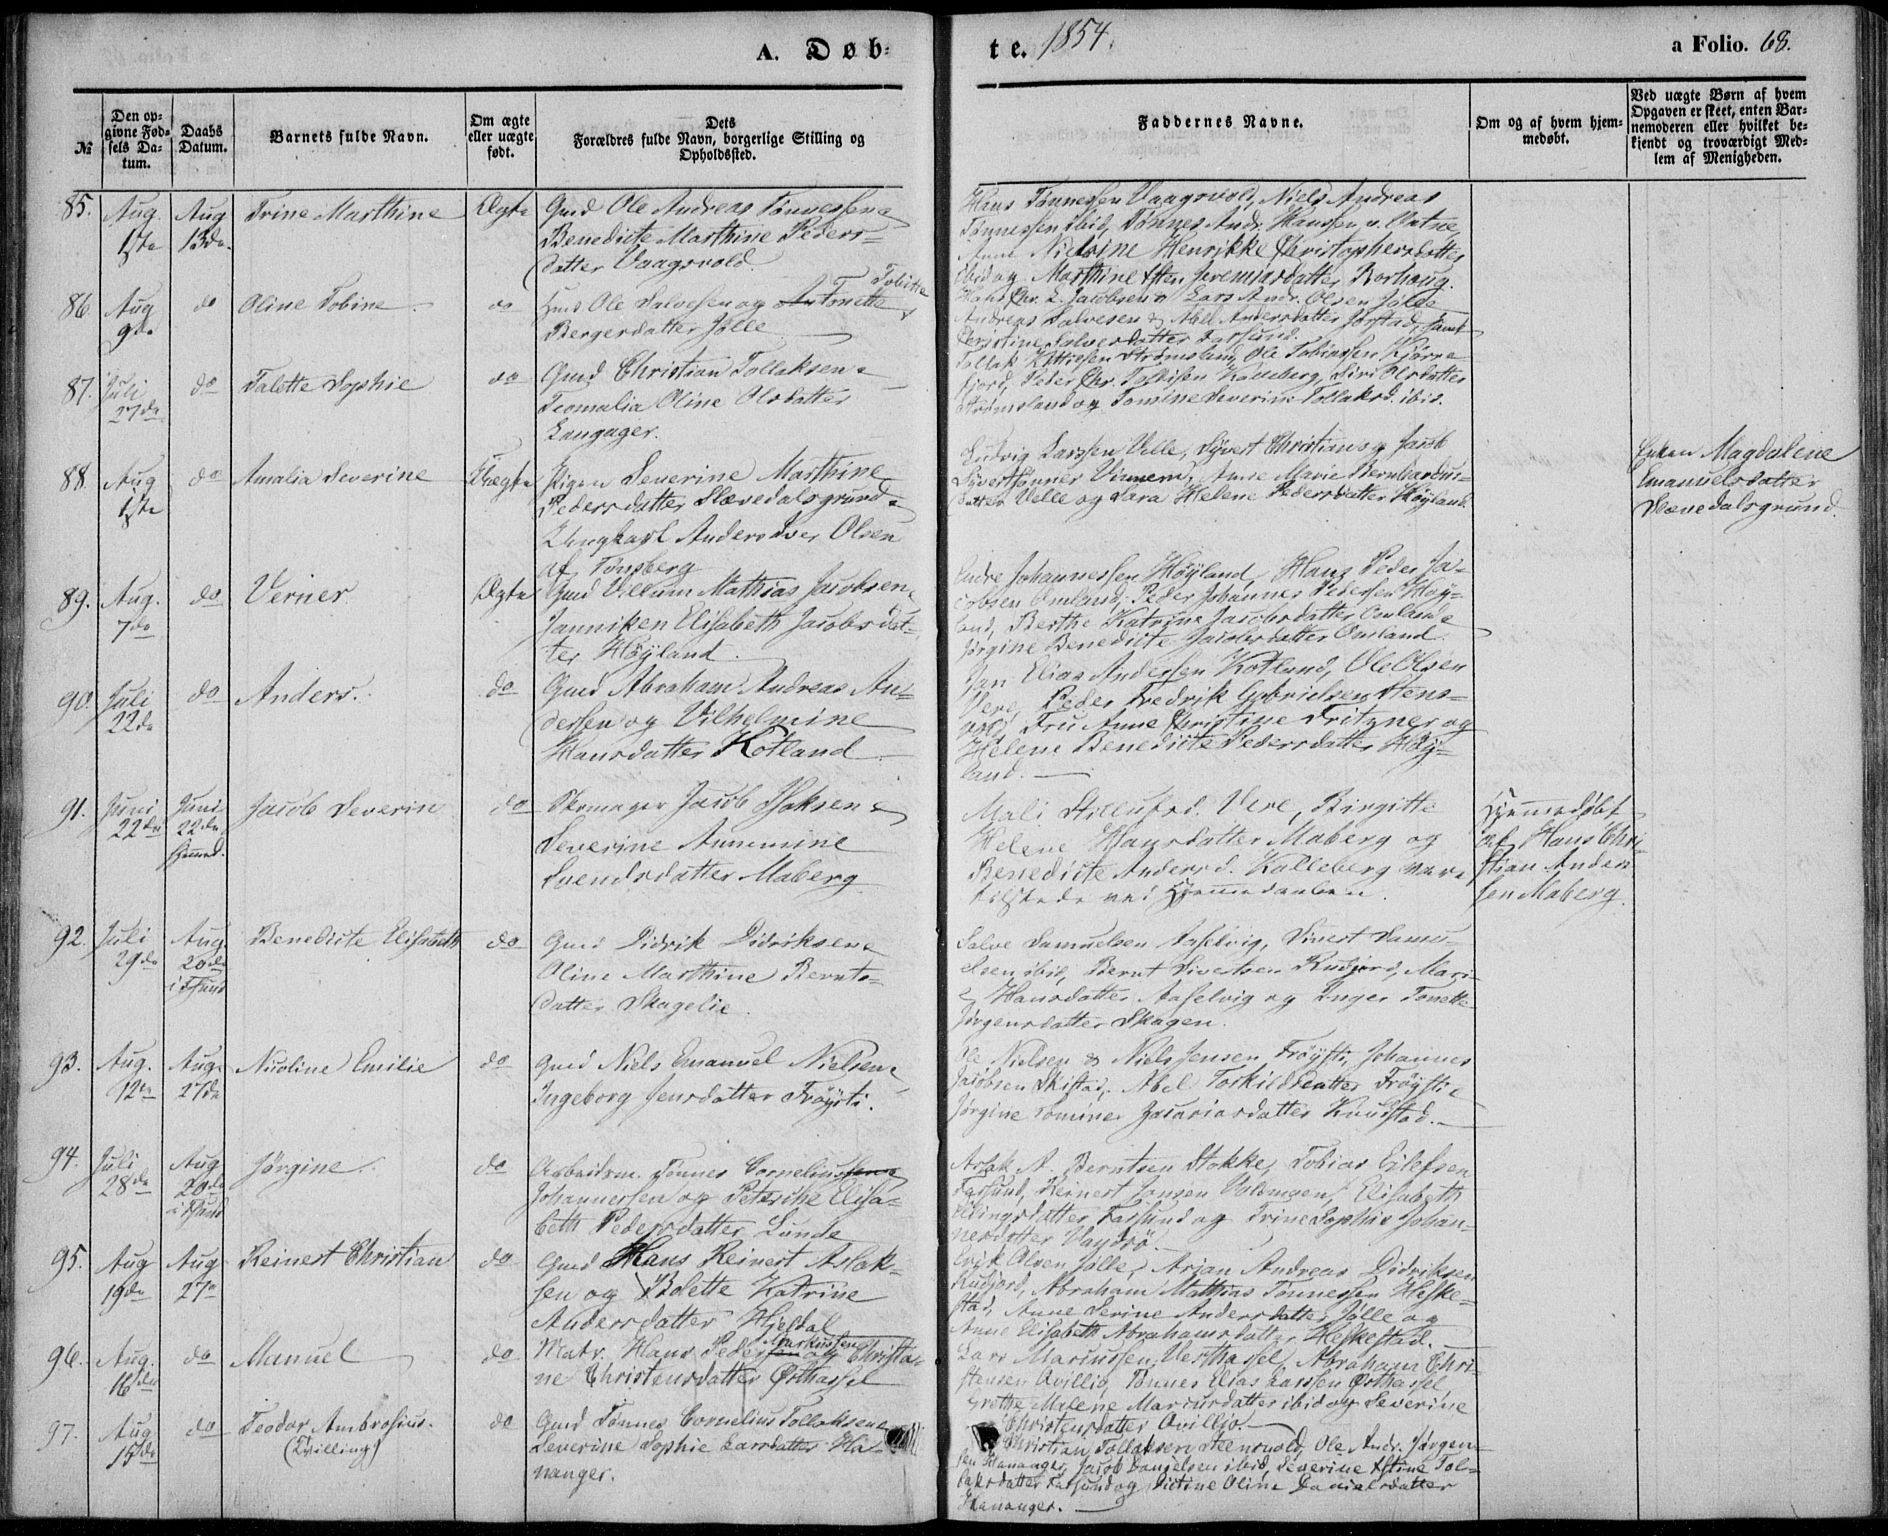 A. Døb-
te. 1854.
a Folio. 68.
№
Den op-
givne Fød-
sels Da-
tum.
Daabs
Datum.
Barnets fulde Navn.
Om ægte
eller uægte
født.
Dets
Forældres fulde Navn, borgerlige Stilling og
Opholdssted.
Faddernes Navne.
Om og af hvem hjem-
medøbt.
Ved uægte Børn af hvem
Opgaven er skeet, enten Bar-
nemoderen eller hvilket be-
kjendt og troværdigt Med-
lem af Menigheden.
85. Aug. 1ste
Aug 13de
Trine Marthine
Ægte
Gmd Ole Andreas Tønnessen &
Benedicte Marthine Peders-
datter Vaagsvold.
Hans Tønnessen Vaagsvold, Niels Andreas
Tønnessen ibid, Tønnes Andr. Hanssen v. Vatne,
Anne Nielsine Henrikke Christophersdatter
ibid og Marthine Jeremiasdatter Borhaug.
86. Aug 9de
do
Oline Tobine
do
Hmd Ole Salvesen og Tobitte
Bergersdatter Jølle
Hans Chr. L. Jacobsen & Lars Andr. Olsen Jølle
Andreas Salvesen & Abel Andersdatter Jørstad, samt
Christine Salvesdatter Farsund.
87. Juli 27de
do
Talette Sophie
do
Gmd Christian Tollaksen &
Teomalia Oline Olsdatter
Langager.
Tollak Strømsland, Ole Tobiassen Kjørre-
fjord, Peder Chr. Kalleberg, Siri Olsdatter
Strømsland og Tomine Severine Tollaksd. ibid.
88. Aug 1ste
do
Amalia Severine
Uægte
Pigen Severine Marthine
Pedersdatter Slævedalsgrund &
Ungkarl Anders Olsen
af Tønsberg
Ludvig Larssen Velle, Syvert Christians & Jacob
Syvertsønner Vinnem, Anne Marie Bernhardus-
datter Velle og Sara Helene Pedersdatter Høyland.
Enken Magdalene
Emanuelsdatter
Slævedalsgrund.
89. Aug. 7de
do
Verner
Ægte
Gmd Villum Mathias Jacobsen &
Janniken Elisabeth Jacobsdat-
ter Høyland.
Endre Johannessen Høyland, Hans Peder Ja-
cobsen Omland, Peder Johannes Pedersen Høy-
land, Berthe Katrine Jacobsdatter Omland &
Jørgine Benedicte Jacobsdatter Omland.
90. Juli 22de
do
Anders.
do
Gmd Abraham Andreas An-
dersen og Vilhelmine
Hansdatter Kotland
Jan Elias Andersen Kotland, Ole Olsen
Vere, Peder Fredrik Gabrielsen Stens-
vold, Fru Anne Christine Fritzner og
Helene Benedicte Pedersdatter Høy-
land.
91. Juni 22de
Juni 22de hjemmed.
Jacob Severin
do
Skomager Jacob Isaksen &
Severine Annmine
Svendsdatter Maberg
Mali Vere, Birgitte
Helene Hansdatter Maberg og
Benedicte Andersd. Kalleberg vare
tilstede ved Hjemmedaaben.
Hjemmedøbt
af Hans Chri-
stian Ander-
sen Maberg.
92. Juli 29de
Aug. 20de i Fsund
Benedicte Elisabeth
do
Gmd Didrik Didriksen &
Oline Marthine Bernts-
datter Skagelie.
Salve Samuelsen Aaselvig, Sivert Samu-
elsen ibid, Bernt Sivertsen Rudjord, Mari-
e Hansdatter Aaselvig og Inger Tonette
Jørgensdatter Skagen.
93. Aug. 12te
Aug. 27de
Nicoline Emilie
do
Gmd Niels Emanuel Nielsen &
Ingeborg Jensdatter Frøysti.
Ole Nielsen & Niels Jensen Frøysti, Johannes
Jacobsen Skistad, Abel Torkildsdatter Frøysti &
Jørgine Tomine Zacariasdatter Knudstad.
94. Juli 28de
Aug 20de i Fsund
Jørgine
do
Arbeidsm. Tønnes Cornelius
Johannessen og Petriche Elisa-
beth Pedersdatter Lunde
Aslak A. Berntsen Stokke, Tobias Eilefsen
Farsund, Reinert Jansen, Elisabeth
Ellingsdatter Farsund og Trine Sophie Johan-
nesdatter.
95. Aug 19de
Aug 27de
Reinert Christian
do
Gmd Hans Reinert Aslak-
sen og Bolette Katrine
Andersdatter Hjelsdal
Erik Olsen Jølle, Arian Andreas Didriksen
Rudjord, Abraham Mathias Tønnessen Heske-
stad, Anne Serine Andersdatter Jølle og
Anne Elisabeth Abrahamsdatter Heskestad.
96. Aug. 16de
do
Manuel
do
Matr. Hans Peder Markussen og Christia-
ne Christensdatter Østhassel
Lars Mariussen Vesthassel, Abraham Chri-
stensen Qvilljo, Tønnes Elias Larssen Østhassel
Grethe Malene Mariusdatter ibid og Severine
Christensdatter Qvilljo.
97. Aug 15de
do
Teodor Ambrosius.
(Tvilling)
do
Gmd Tønnes Cornelius Tollaksen &
Severine Sophie Larsdatter Ha-
nanger.
Christian Tollaksen Stensvold, Ole Andr. Jørgen-
sen Hananger, Jacob Danielsen ibid, Severine Tol-
laksdatter Farsund og Oline Danielsdatter
Hananger.